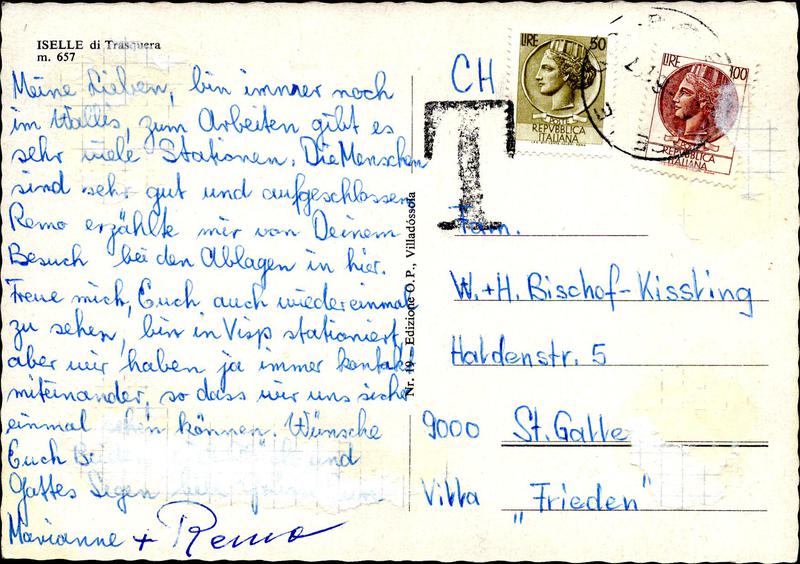 ISELLE di Trasquera
m. 657
Meine Lieben, bin immer noch
im Wallis, zum Arbeiten gibt es
sehr viele Stationen. Die Menschen
sind sehr gut und aufgeschlossen
Remo erzählte mir von Deinem
Besuch bei den Ablagen in hier.
Freue mich, Euch auch wiedereinmal
zu sehen, bin in Visp stationiert,
aber wir haben ja immer kontakt
miteinander, so dass wir uns sicher
einmal sehen können. Wünsche
Euch und
Gottes Segen
Marianne + Remo
Nr. 19 – Edizione O.P., Villadossola
CH
T
LIRE 50
REPVBBLICA
ITALIANA
LIRE 100
REPVBBLICA
ITALIANA
Fam.
W.+H. Bischof-Kissling
Haldenstr. 5
9000 St. Galle
Villa "Frieden"